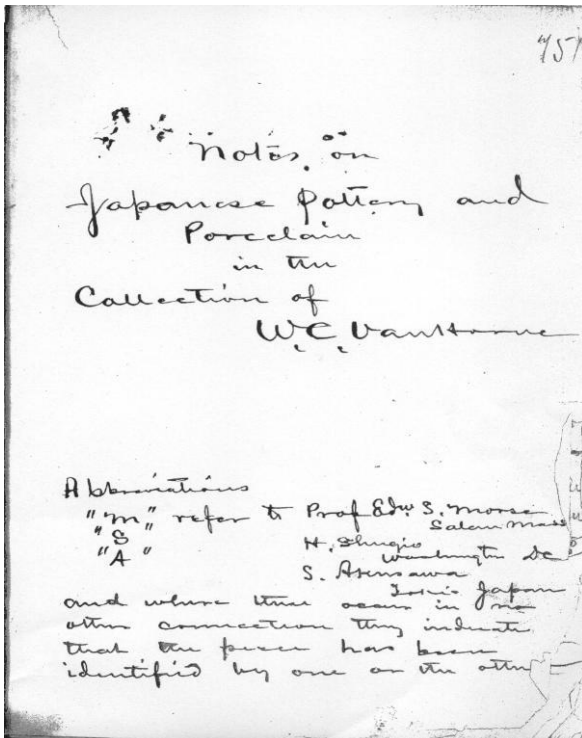 751
Notes on
Japanese Pottery and
Porcelain
in the
Collection of
W.C. Van Horne
Abbreviations
"M" refer to Prof Edw S. Morse
Salem Mass
"S" H. Shugio
Washington DC
"A" S.
Tokio Japan
and where these occur in no
other connection they indicate
that the piece has been
identified by one or the other